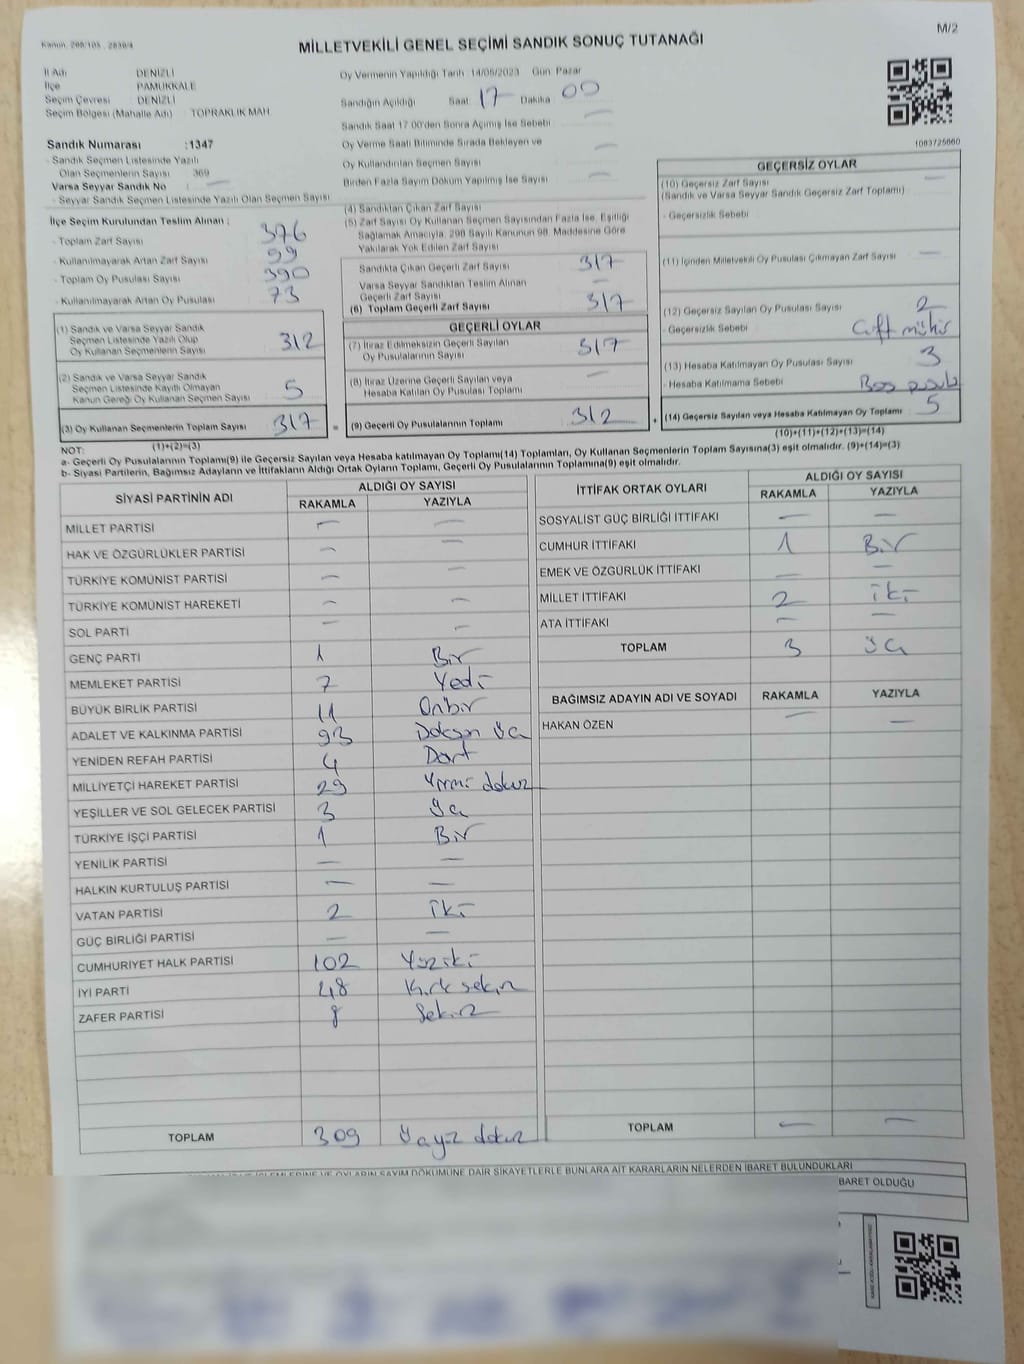 M/2
Kanun. 298/105 . 2839/4
MİLLETVEKİLİ GENEL SEÇİMİ SANDIK SONUÇ TUTANAĞI
İl Adı DENİZLİ
İlçe PAMUKKALE
Seçim Çevresi DENİZLİ
Seçim Bölgesi (Mahalle Adı) TOPRAKLIK MAH
Sandık Numarası :1347
- Sandık Seçmen Listesinde Yazılı
Olan Seçmenlerin Sayısı 369
Varsa Seyyar Sandık No : —
- Seyyar Sandık Seçmen Listesinde Yazılı Olan Seçmen Sayısı
Oy Vermenin Yapıldığı Tarih :14/05/2023 Gün: Pazar
Sandığın Açıldığı Saat: 17 Dakika 00
Sandık Saat 17.00'den Sonra Açımış İse Sebebi —
Oy Verme Saati Bitiminde Sırada Bekleyen ve
Oy Kullandırılan Seçmen Sayısı —
Birden Fazla Sayım Döküm Yapılmış İse Sayısı —
1083725660
İlçe Seçim Kurulundan Teslim Alınan ;
- Toplam Zarf Sayısı 376
- Kullanılmayarak Artan Zarf Sayısı 99
- Toplam Oy Pusulası Sayısı 390
- Kullanılmayarak Artan Oy Pusulası 73
(1) Sandık ve Varsa Seyyar Sandık
Seçmen Listesinde Yazılı Olup
Oy Kullanan Seçmenlerin Sayısı 312
(2) Sandık ve Varsa Seyyar Sandık
Seçmen Listesinde Kayıtlı Olmayan
Kanun Gereği Oy Kullanan Seçmen Sayısı 5
(3) Oy Kullanan Seçmenlerin Toplam Sayısı 317
(1)+(2)=(3)
(4) Sandıktan Çıkan Zarf Sayısı
(5) Zarf Sayısı Oy Kullanan Seçmen Sayısından Fazla İse, Eşitliği
Sağlamak Amacıyla, 298 Sayılı Kanunun 98. Maddesine Göre
Yakılarak Yok Edilen Zarf Sayısı
Sandıkta Çıkan Geçerli Zarf Sayısı 317
Varsa Seyyar Sandıktan Teslim Alınan
Geçerli Zarf Sayısı —
(6) Toplam Geçerli Zarf Sayısı 317
GEÇERLİ OYLAR
(7) İtiraz Edilmeksizin Geçerli Sayılan
Oy Pusulalarının Sayısı 317
(8) İtiraz Üzerine Geçerli Sayılan veya
Hesaba Katılan Oy Pusulası Toplamı —
(9) Geçerli Oy Pusulalarının Toplamı 312
GEÇERSİZ OYLAR
(10) Geçersiz Zarf Sayısı —
(Sandık ve Varsa Seyyar Sandık Geçersiz Zarf Toplamı)
- Geçersizlik Sebebi
(11) İçinden Milletvekili Oy Pusulası Çıkmayan Zarf Sayısı —
(12) Geçersiz Sayılan Oy Pusulası Sayısı 2
- Geçersizlik Sebebi Çift mühür
(13) Hesaba Katılmayan Oy Pusulası Sayısı 3
- Hesaba Katılmama Sebebi Boş pusula
(14) Geçersiz Sayılan veya Hesaba Katılmayan Oy Toplamı 5
(10)+(11)+(12)+(13)=(14)
NOT:
a- Geçerli Oy Pusulalarının Toplamı(9) ile Geçersiz Sayılan veya Hesaba katılmayan Oy Toplamı(14) Toplamları, Oy Kullanan Seçmenlerin Toplam Sayısına(3) eşit olmalıdır. (9)+(14)=(3)
b- Siyasi Partilerin, Bağımsız Adayların ve İttifakların Aldığı Ortak Oyların Toplamı, Geçerli Oy Pusulalarının Toplamına(9) eşit olmalıdır.
SİYASİ PARTİNİN ADI ALDIĞI OY SAYISI
RAKAMLA YAZIYLA
MİLLET PARTİSİ — —
HAK VE ÖZGÜRLÜKLER PARTİSİ — —
TÜRKİYE KOMÜNİST PARTİSİ — —
TÜRKİYE KOMÜNİST HAREKETİ — —
SOL PARTİ — —
GENÇ PARTİ 1 Bir
MEMLEKET PARTİSİ 7 Yedi
BÜYÜK BİRLİK PARTİSİ 11 Onbir
ADALET VE KALKINMA PARTİSİ 93 Doksan üç
YENİDEN REFAH PARTİSİ 4 Dört
MİLLİYETÇİ HAREKET PARTİSİ 29 Yirmi dokuz
YEŞİLLER VE SOL GELECEK PARTİSİ 3 Üç
TÜRKİYE İŞÇİ PARTİSİ 1 Bir
YENİLİK PARTİSİ — —
HALKIN KURTULUŞ PARTİSİ — —
VATAN PARTİSİ 2 İki
GÜÇ BİRLİĞİ PARTİSİ — —
CUMHURİYET HALK PARTİSİ 102 Yüziki
İYİ PARTİ 48 Kırk sekiz
ZAFER PARTİSİ 8 Sekiz
TOPLAM 309 Üçyüz dokuz
İTTİFAK ORTAK OYLARI ALDIĞI OY SAYISI
RAKAMLA YAZIYLA
SOSYALİST GÜÇ BİRLİĞİ İTTİFAKI — —
CUMHUR İTTİFAKI 1 Bir
EMEK VE ÖZGÜRLÜK İTTİFAKI — —
MİLLET İTTİFAKI 2 İki
ATA İTTİFAKI — —
TOPLAM 3 Üç
BAĞIMSIZ ADAYIN ADI VE SOYADI RAKAMLA YAZIYLA
HAKAN ÖZEN — —
TOPLAM — —
İŞLEMLERİNE VE OYLARIN SAYIM DÖKÜMÜNE DAİR ŞİKAYETLERLE BUNLARA AİT KARARLARIN NELERDEN İBARET BULUNDUKLARI
İBARET OLDUĞU